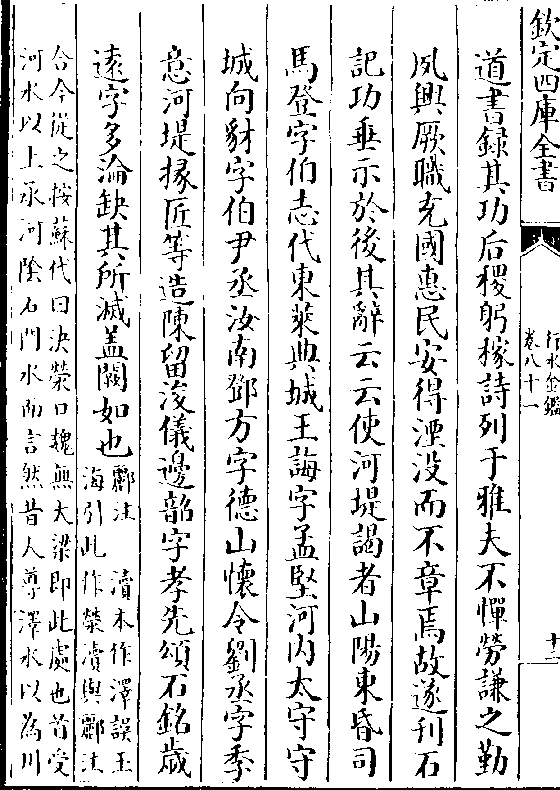 欽定四庫全書
行水金鑑
卷八十一
十二
道書録其功后稷躬稼詩列于雅夫不憚勞謙之勤
夙興厥職充國惠民安得湮没而不章焉故遂刊石
記功垂示於後其辭云云使河堤謁者山陽東昏司
馬登字伯志代東萊典城王誨字孟堅河内太守守
城向豺字伯尹丞汝南鄧方字德山懷令劉丞字季
意河堤掾匠等造陳留浚儀邊韶字孝先頌石銘歳
逺字多淪缺其所滅盖闕如也酈注瀆本作澤誤玉
海引此作滎瀆與酈注
合今從之按蘇代曰決滎口魏無大梁即此處也首受
河水以上承河隂石門水而言然昔人專澤水以為川